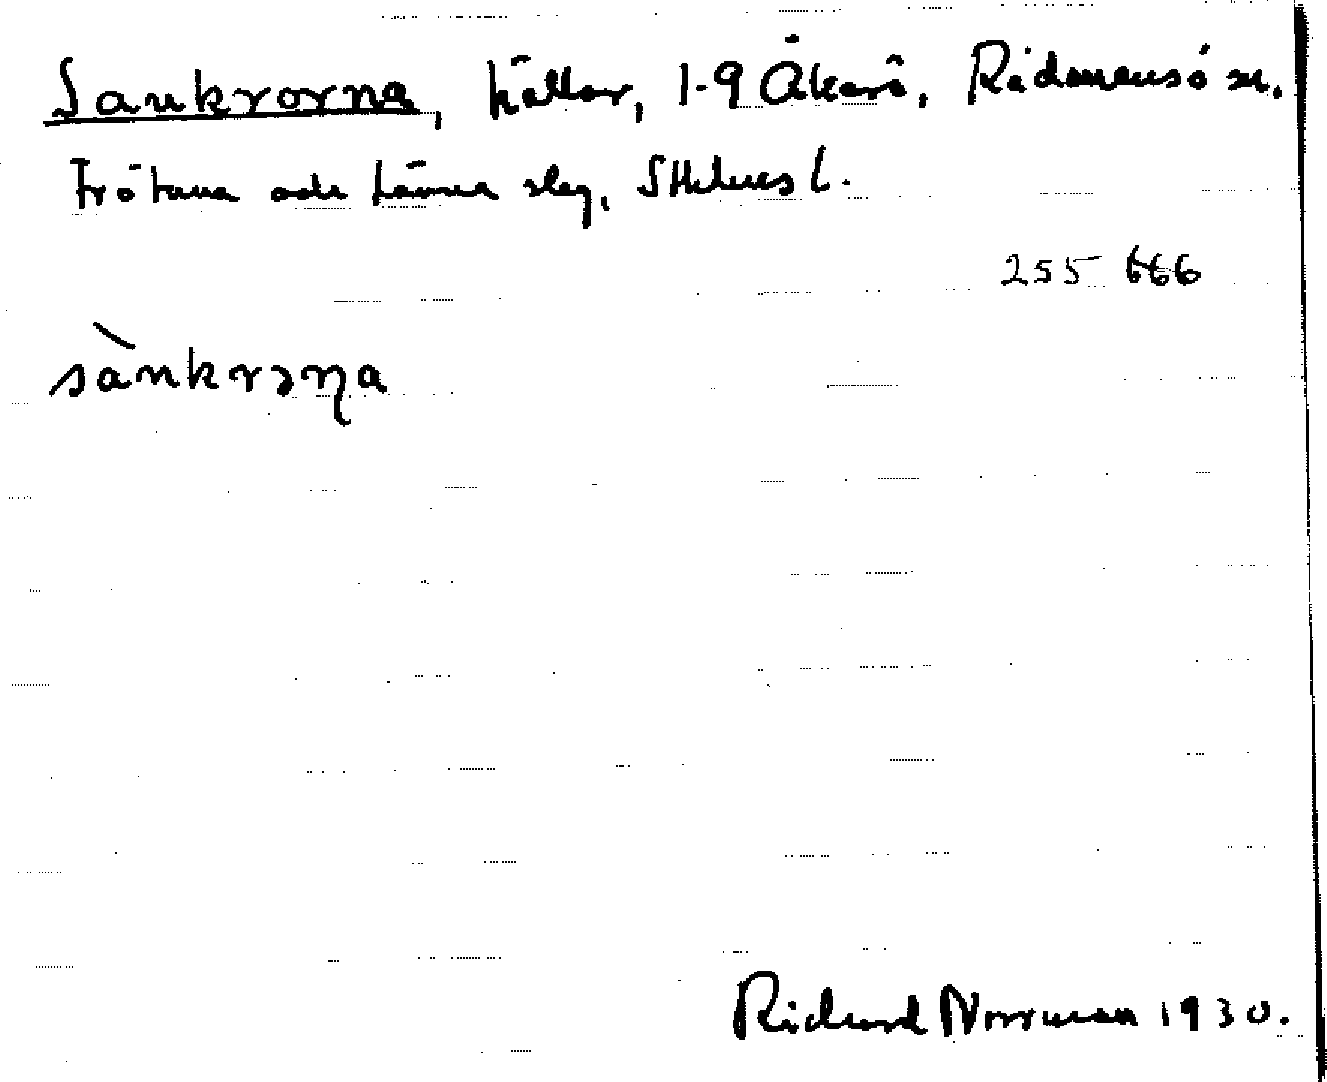 Sankrorna, hällar, 1-9 Åkerö, Rådmansö sn.
Frötuna och Länna slg, Sthlms l.
255 666
sànkrəɳa
Richard Norrman 1930.